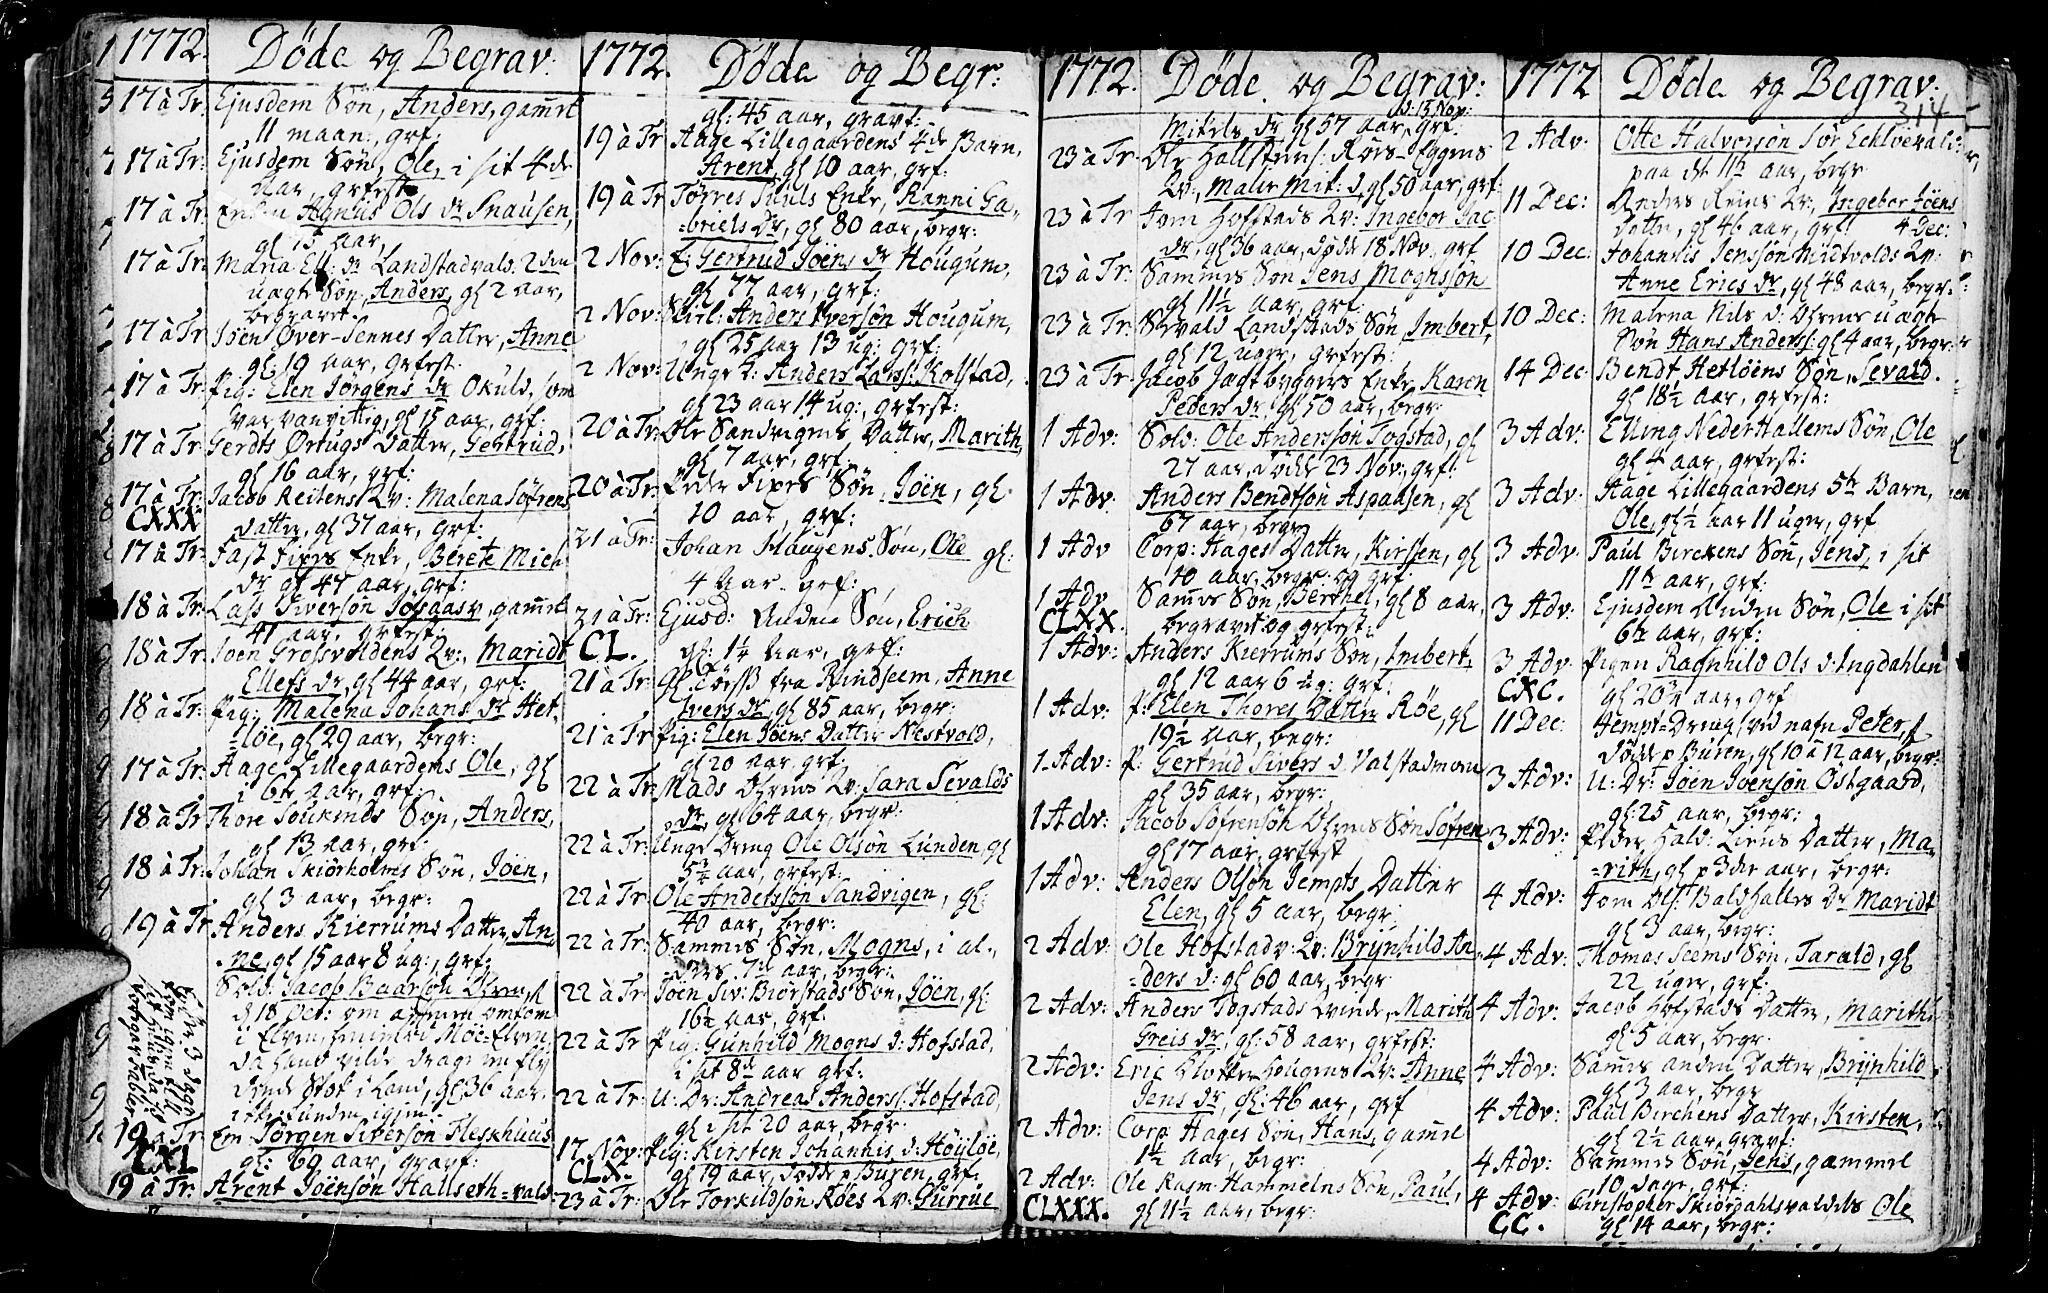 1772. Døde og Begrav:
17 à Tr: Ejusdem Søn, Anders, gam̄el
11 maan:, grf:
17 à Tr: Ejusdem Søn, Ole, i sit 4de
Aar, grfest
17 à Tr: Enken Agnus Ols dr Snausen,
gl 75 aar,
17 à Tr: Maria Ell: dr Landstadvald: 2den
uægte Søn, Anders, gl 2 aar,
begravet.
17 à Tr Joen Over-Sennes Datter, Anne
gl: 19 aar, grfest
17 à Tr: Pig: Elen Jørgens dr Okuld, som
var vanvittig, gl 15 aar, grf:
17 à Tr: Gerdts Ørtugs Datter, Gertrud,
gl 16 aar, grf:
17 à Tr: Jacob Reitens Qv: Malena Sofrens
CXXX Datter, gl 37 aar, grf:
17 à Tr: Fast Fixes Enke, Berete Mich
dr gl 47 aar, grf:
18 à Tr: Lass Siversøn Josaasv, gam̄el
41 aar, grfest:
18 à Tr: Joen Grossvoldens Qv:, Maridt
Ellefs dr, gl 44 aar, grf:
18 à Tr: Pig: Malena Johans dr Het-
=løe, gl 29 aar, begr:
17 à Tr: Aage Lillegaardens Ole, gl
i 6te aar, grf:
18 à Tr Thore Souknes Søn, Anders,
gl 13 aar, grf:
18 à Tr: Johan Skiørholms Søn, Joen,
gl 3 aar, begr:
19 à Tr Anders Kierrums Datter, An-
=ne, gl 15 aar 8 ug:, grf:
Sold: Jacob Baarsøn
d 18 Oct: om aftenen omkom
i Elven,
da hans vilde drage en fly
Stok i Land, gl 36 aar.
ikke funden igien.
19 à Tr: Em: Jørgen Siversøn Fleskhuus
CXL gl: 69 aar, gravf:
19 à Tr: Arent Joensøn Hallseth=vald:
1772. Døde og Begr:
gl: 45 aar, gravf:
19 à Tr Aage Lillegaardens 4de Barn,
Arent, gl 10 aar, grf:
19 à Tr Torres Suuls Enke, Ranni Ga-
=briels Dr, gl 80 aar, begr:
2 Nov: E: Gertrud Joens dr Hougum,
gl 77 aar, grf:
2 Nov: Anders Iversøn Hougum,
gl 25 aar 13 ug: grf:
2 Nov: Unge K: Anders Larss: Kolstad,
gl 23 aar 14 ug:, grfest:
20 à Tr: Ole Sandvigens Datter, Marith,
gl 7 aar, grf:
20 à Tr: Peder Fixes Søn, Joen, gl:
10 aar, grf:
21 à Tr: Johan Haugens Søn, Ole gl:
4 Aar. grf:
21 à Tr: Ejusd: Anden Søn, Erich
CL. gl: 1¼ Aar, grf:
21 à Tr: fra Rindseem, Anne
Ivers dr, gl 85 aar, begr:
21 à Tr Pig: Elen Joens Datter Nestvold,
gl 20 aar grf:
22 à Tr: Mads Qv: Sara Sevalds
dr, gl 64 aar, begr:
22 à Tr: Unge Dreng Ole Olson Lunden, gl
5¾ aar, grfest:
22 à Tr: Ole Andersson Sandvigen, gl:
40 aar, begr:
22 à Tr: Sammes Søn, Mogns, i al-
ders 7de aar, begr:
22 à Tr: Joen Siv: Biorstads Søn, Joen, gl:
16½ aar, grf:
22 à Tr Pig: Gunhild Mogns d: Hofstad,
i sit 8de aar grf:
22 à Tr: U: Dr: Andreas Anderss: Hofstad,
gl i sit 20 aar, begr:
17 Nov: Pig: Kirsten Johannis d: Høyløe,
CLX. gl 19 aar, døde p Buren, grf:
23 à Tr: Ole Torkildsøn Roes Qv: Gurrue
1772. Døde og Begrav:
d: 13 Nov:
Mikels dr gl 57 aar, grf:
23 à Tr: Ole Hallstens: Rørs-Eggens
Qv: Malir Mik: d, gl 50 aar, grf:
23 à Tr Tom Hofstads Qv: Ingebor Jac
dr, gl 36 aar, døde 18 Nov, grf
23 à Tr: Sammes Søn Jens Mognssøn
gl 11½ aar, grf:
23 à Tr: Sevald Landstads Søn Imbert,
gl 12 uger, grfest:
23 à Tr. Jacob Jægtbyggers Enke Karen
Peders dr, gl 50 aar, begr:
1 Adv: Sold: Ole Andersøn Togstad, gl
27 aar, døde 23 Nov:, grf:
1 Adv: Anders Bendtson Aspaasen, gl
67 aar, begr:
1 Adv Corp: Hages Datter, Kirsten, gl
10 aar, begr: og grf:
1 Adv Sam̄es Søn, Berthel, gl 8 aar,
CLXX. begravet og grfest:
1 Adv: Anders Kierrums Søn, Imbert,
gl 12 aar 6 ug: grf:
1 Adv: P: Elen Thores Datter Røe, gl
19½ aar, begr:
1 Adv: P: Gertrud Sivers d: Valstadmoen
gl 35 aar, begr:
1 Adv: Jacob Søfrensøn Søn Søfren
gl 17 aar, grfest
1 Adv: Anders Olsøn Jempts Datter
Elen, gl 5 aar, begr:
2 Adv: Ole Hofstadv: Qv: Brÿnhild An-
=ders d: gl 60 aar, begr
2 Adv: Anders Togstads Qvinde, Marith
Greis dr, gl: 58 aar, grfest:
2 Adv: Eric Haugens Qv: Anne
Jens dr, gl: 46 aar, grf
2 Adv: Corp: Hages Søn, Hans, gamel
1½ aar, begr:
2 Adv: Ole Rasm: Hammelns Søn, Paul,
CLXXX. gl 11½ aar, begr:
1772 Døde og Begrav:
314
2 Adv: Otte Halvorsøn
paa det 11te aar, begr
11 Dec: Anders Reins Qv:, Ingebor Joens
Datter, gl 46 aar, grf: 4 Dec:
10 Dec: Johannis Jenssøn Midtvolds Qv:
Anne Erics dr, gl 48 aar, begr:
10 Dec: Malena Nils d: uægte
Søn Hans Anderss: gl 4 aar, begr:
14 Dec Bendt Hetløens Søn, Sevald.
gl 18½ aar, grfest:
3 Adv: Elling Neder Hallems Søn, Ole
gl 4 aar, grfest:
3 Adv: Aage Lillegaardens 5te Barn,
Ole, gl ½ aar 11 uger, grf
3 Adv: Paul Birckens Søn, Jens, i sit
11te aar, grf:
3 Adv: Ejusdem Anden Søn, Ole i sit
6te aar, grf:
3 Adv Pigen Ragnhild Ols d: Ingdahlen
CXC. gl 20¾ aar, grf
11 Dec: Jempt=Dreng, ved nafn Peter,
døde p Buren, gl 10 à 12 aar, begr:
3 Adv: U: Dr: Joen Joensøn Ostgaard,
gl: 25 aar, begr:
3 Adv: Peder Hald: Liens Datter, Ma-
=rith, gl p 3die aar, begr:
4 Adv: Tom Ols: Balshalles Dr Maridt
gl 3 aar, begr:
4 Adv: Thomas Seems Søn, Tarald, gl
22 uger, grf:
4 Adv: Jacob Hofstads Datter, Marith,
gl 5 aar, begr
4 Adv: Sam̄es anden Datter, Brÿnhild
gl 3 aar, begr
4 Adv: Paul Birchens Datter, Kirsten,
gl 2½ aar, gravf:
4 Adv: Sammes Søn, Jens, gammel
10 dage, grf:
4 Adv: Christopher Skiordahlsvaldets Ole
CC. gl 14 aar, begr: